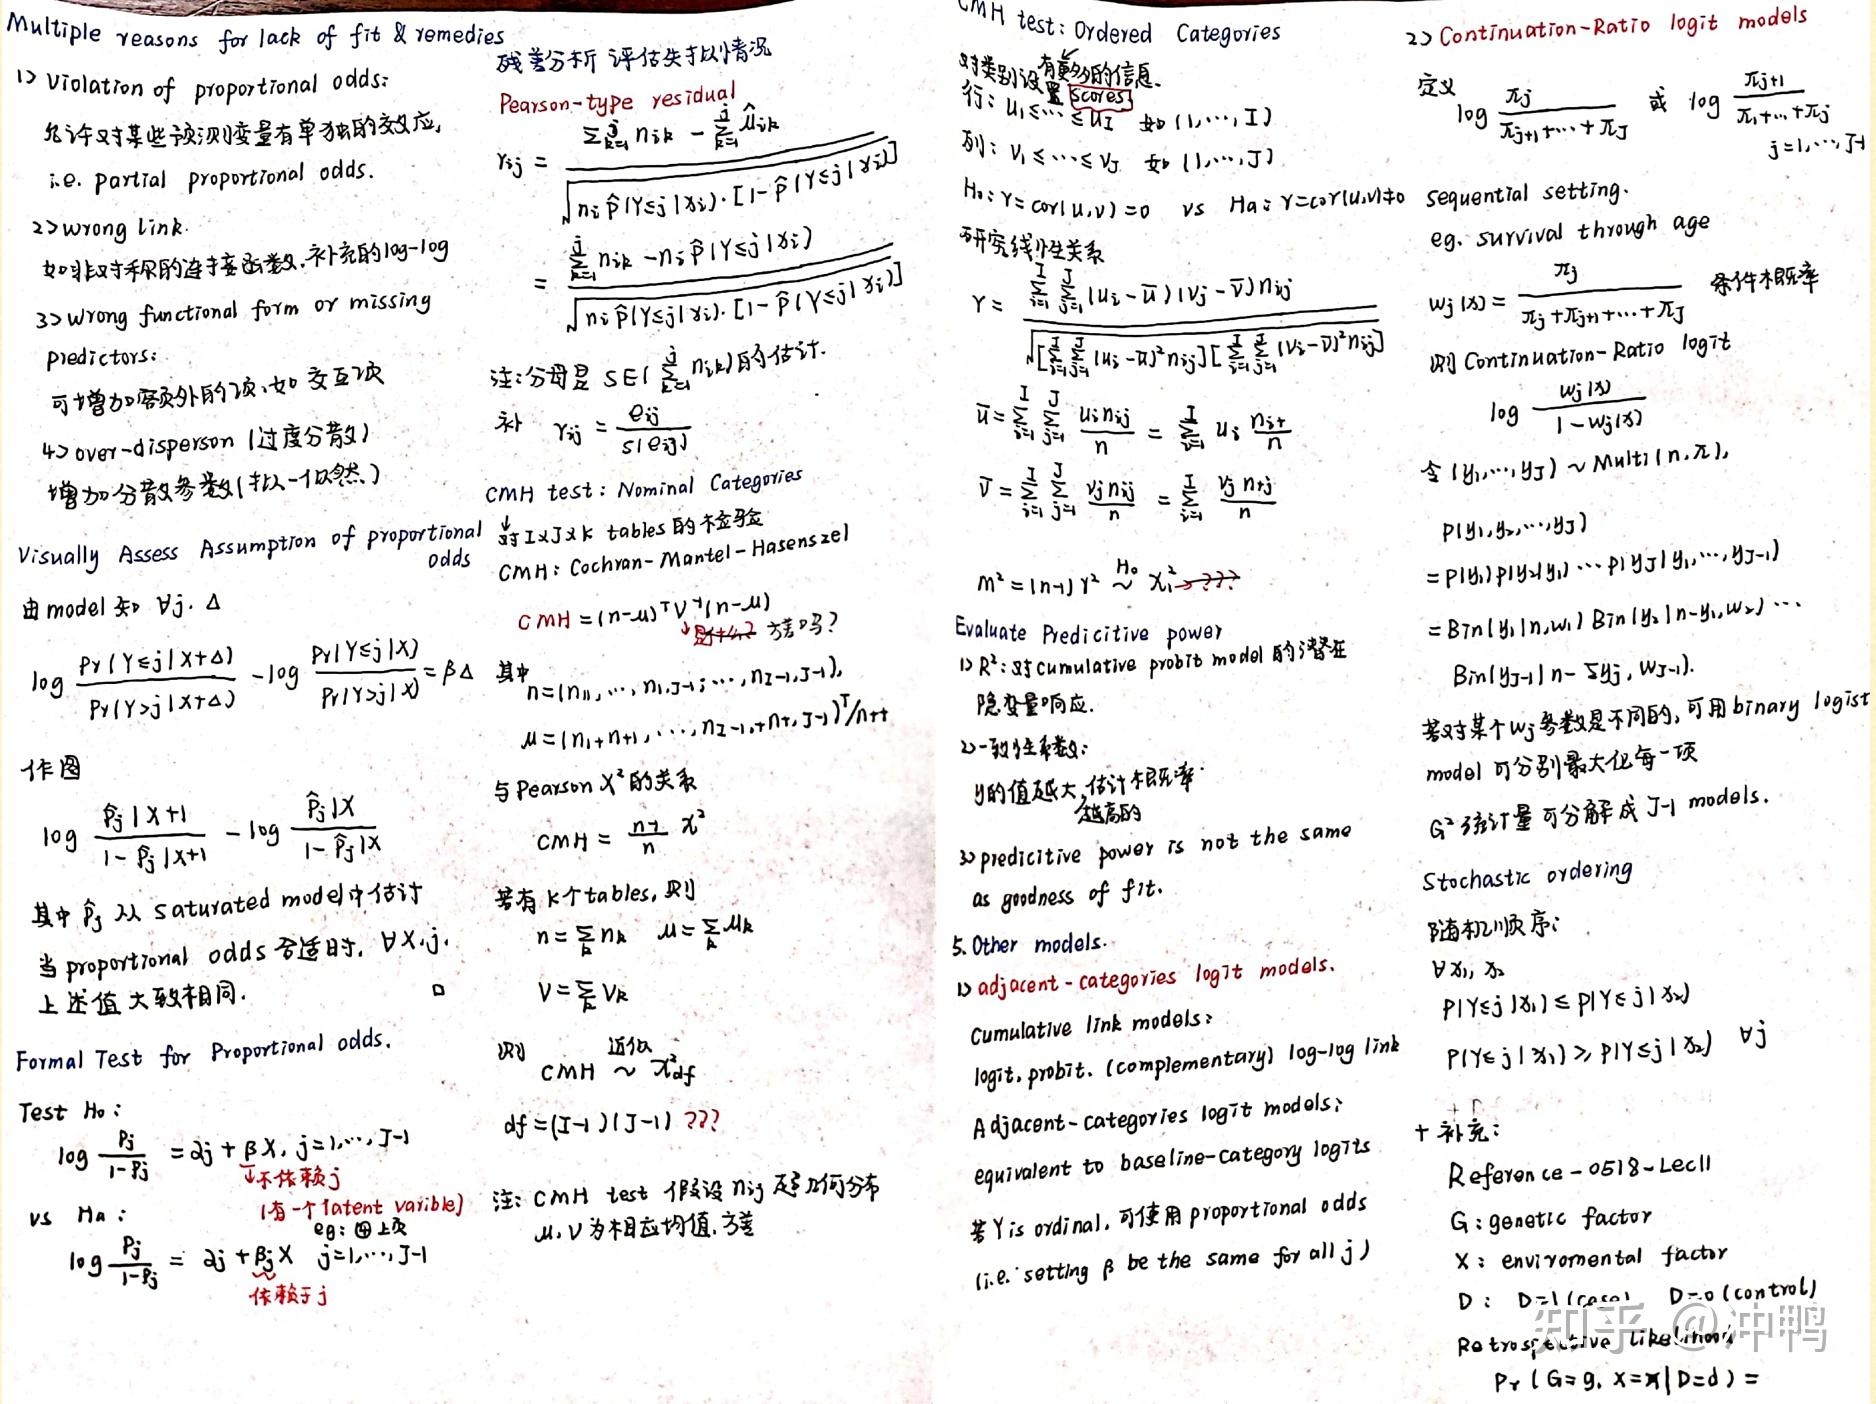 Multiple reasons for lack of fit & remedies
1> Violation of proportional odds:
允许对某些预测变量有单独的效应,
i.e. partial proportional odds.
2> wrong link.
如非对称的连接函数,补充的log-log
3> wrong functional form or missing
predictors:
可增加额外的项,如交互项
4> over-disperson (过度分散)
增加分散参数(拟-似然)
Visually Assess Assumption of proportional
odds
由model知 ∀j. Δ
log Pr(Y≤j|X+Δ) / Pr(Y>j|X+Δ) - log Pr(Y≤j|X) / Pr(Y>j|X) = βΔ
作图
log p̂j|X+1 / 1-p̂j|X+1 - log p̂j|X / 1-p̂j|X
其中 p̂j 从 saturated model中估计
当proportional odds合适时, ∀X,j.
上述值大致相同. □
Formal Test for Proportional odds.
Test H0:
log Pj / 1-Pj = αj + βX, j=1,…,J-1
↓不依赖j
(有一个latent varible)
eg: 上页
vs Ha:
log Pj / 1-Pj = αj + βjX j=1,…,J-1
依赖于j
残差分析 评估失拟情况
Pearson-type residual
rij = Σ^j_{k=1} nik - Σ^j_{k=1} μ̂ik / √(ni p̂(Y≤j|xi)·[1-p̂(Y≤j|xi)])
= Σ^j_{k=1} nik - ni p̂(Y≤j|xi) / √(ni p̂(Y≤j|xi)·[1-p̂(Y≤j|xi)])
注:分母是 SE(Σ^j_{k=1} nik)的估计.
补 rij = eij / s(eij)
CMH test: Nominal Categories
↓对IxJxK tables的检验
CMH: Cochran-Mantel-Hasenszel
CMH = (n-μ)^T V^-1 (n-μ)
↓是什么? 方差吗?
其中
n=(n11,…,n1,J-1;…,nI-1,J-1),
μ=(n1+n+1,…,nI-1,+n+,J-1)^T/n++
与Pearson X²的关系
CMH = n-1 / n X²
若有K个tables,则
n=Σk nk μ=Σk μk
V=Σk Vk
则 CMH 近似~ X²df
df=(I-1)(J-1) ???
注: CMH test 假设 nij 是超几何分布
μ,V为相应均值,方差
CMH test: Ordered Categories
有更多的信息.
对类别设置 scores
行: u1≤…≤uI 如(1,…,I)
列: v1≤…≤vJ 如(1,…,J)
H0: r=cor(u,v)=0 vs Ha: r=cor(u,v)≠0
研究线性关系
r = Σ^I_{i=1} Σ^J_{j=1} (ui-ū)(vj-v̄)nij / √([Σ^I_{i=1} Σ^J_{j=1} (ui-ū)²nij][Σ^I_{i=1} Σ^J_{j=1} (vi-v̄)²nij])
ū = Σ^I_{i=1} Σ^J_{j=1} uinij / n = Σ^I_{i=1} ui ni+ / n
v̄ = Σ^I_{i=1} Σ^J_{j=1} vjnij / n = Σ^I_{i=1} vj n+j / n
m²=(n-1)r² H0~ X²1 →???
Evaluate Predicitive power
1> R²:对cumulative probit model的潜在
隐变量响应.
2>一致性系数:
y的值越大,估计概率
越高的
3> predicitive power is not the same
as goodness of fit.
5. Other models.
1> adjacent-categories logit models.
Cumulative link models:
logit, probit. (complementary) log-log link
Adjacent-categories logit models:
equivalent to baseline-category logits
若Y is ordinal, 可使用proportional odds
(i.e. setting β be the same for all j)
2> Continuation-Ratio logit models
定义 log πj / πj+1+…+πJ 或 log πj+1 / π1+…+πj
j=1,…,J-1
sequential setting.
eg. survival through age
wj(x) = πj / πj+πj+1+…+πJ 条件概率
则Continuation-Ratio logit
log wj(x) / 1-wj(x)
令(y1,…,yJ) ~ Multi(n,π),
P(y1,y2,…,yJ)
=P(y1)P(y2|y1)…P(yJ|y1,…,yJ-1)
=Bin(y1|n,w1)Bin(y2|n-y1,w2)…
Bin(yJ-1|n-Σyj,wJ-1).
若对某个wj参数是不同的,可用binary logist
model可分别最大化每一项
G²统计量可分解成J-1 models.
Stochastic ordering
随机顺序:
∀x1, x2
P(Y≤j|x1)≤P(Y≤j|x2)
P(Y≤j|x1)≥P(Y≤j|x2) ∀j
+ 补充:
Reference-0518-Lec11
G: genetic factor
X: enviromental factor
D: D=1(case) D=0(control)
Retrospective likelihood
Pr(G=g, X=x|D=d) =
知乎 @冲鸭